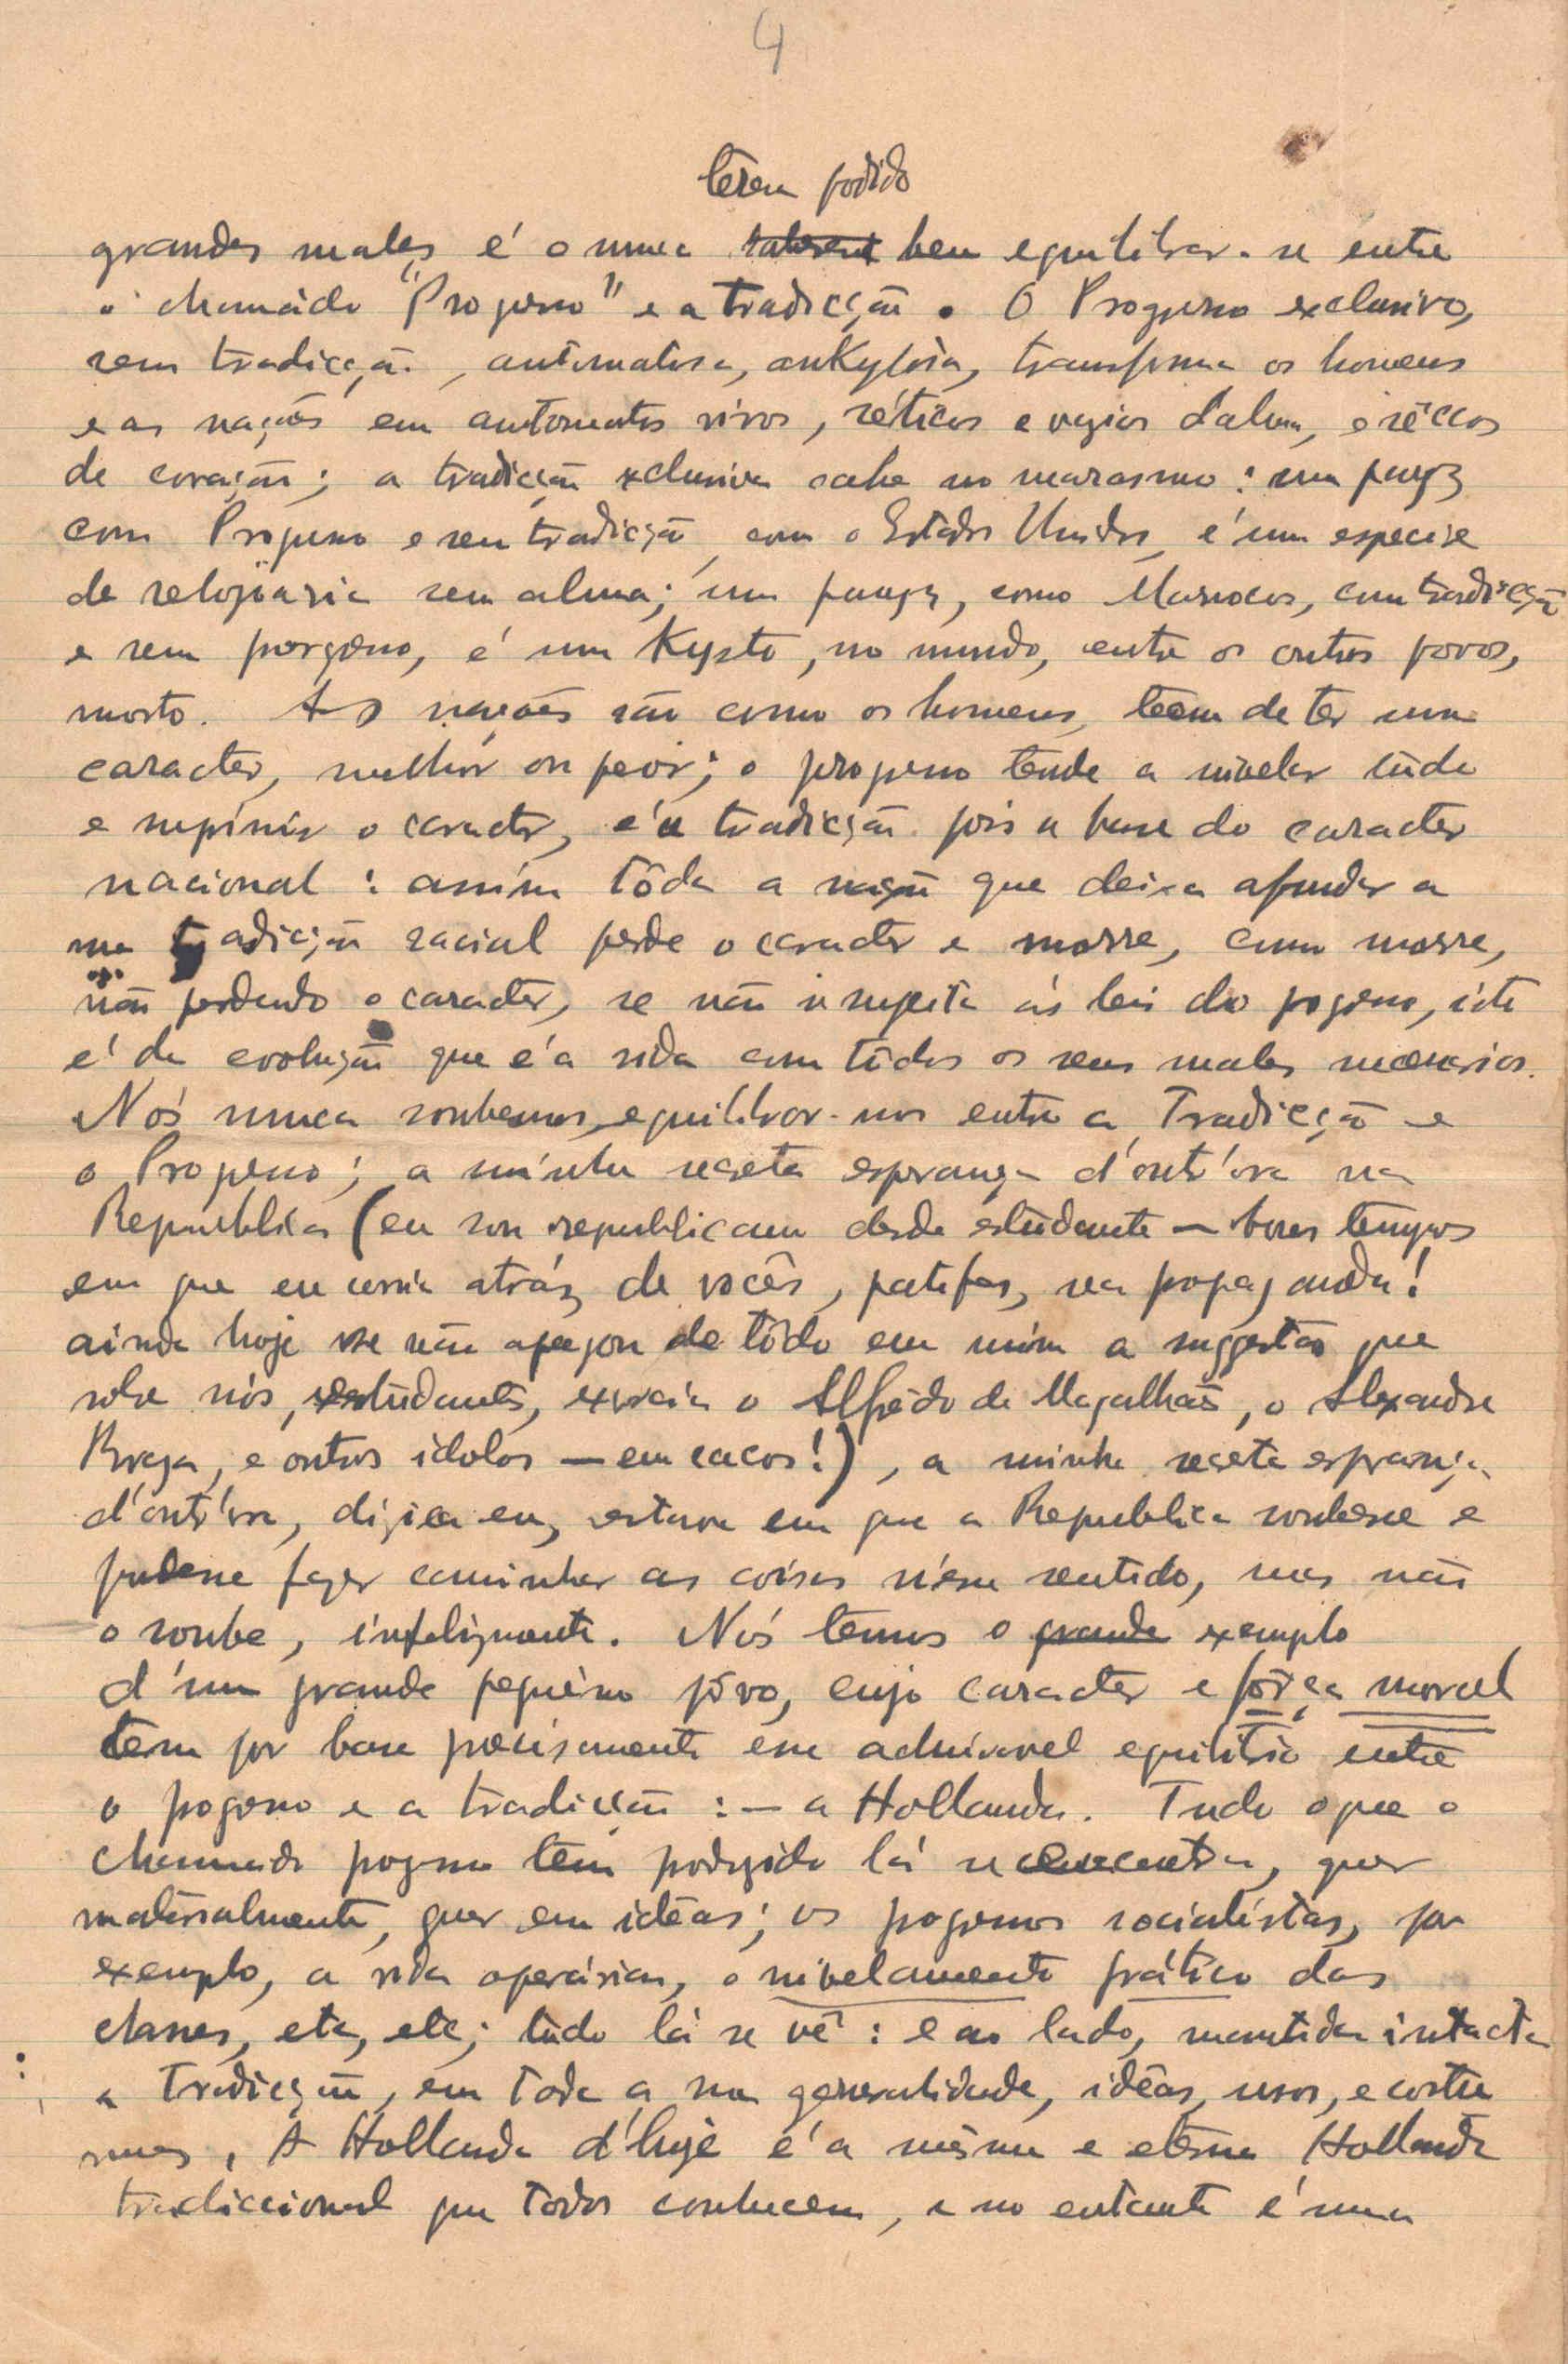 4
terem podido
grandes males é o nunca saberem bem equilibrar-se entre
o chamado "Progresso" e a tradicção. O Progresso exclusivo,
sem tradicção, automatisa, ankylosa, transforma os homens
e as nações em automatos vivos, séticos e vasios d'alma, e sêccos
de coração; a tradicção exclusiva cahe no marasmo: um paiz
com Progresso e sem tradicção, com o Estados Unidos, é um especie
de relojoaria sem alma; um paiz, como Marrocos, com tradicção
e sem progresso, é um Kysto, no mundo, entre os outros povos,
morto. As nações são como os homens, teem de ter um
caracter, melhor ou peor; o progresso tende a nivelar tudo
e suprimir o caracter, é a tradicção pois a base do caracter
nacional: assim tôda a nação que deixa afundar a
sua tradicção racial perde o caracter e morre, como morre,
não perdendo o caracter, se não se sugeita ás leis do progresso, isto
é da evolução que é a vida com tôdos os seus males necessarios.
Nós nunca soubemos equilibrar-nos entre a Tradicção e
o Progresso; a minha secreta esperança d'outr'ora na
Republica (eu sou republicano desde estudante — bons tempos
em que eu corria atráz de vocês, patifes, na propaganda!
ainda hoje se não apagou de tôdo em mim a suggestão que
sobre nós, estudantes, exercia o Alfrêdo de Magalhães, o Alexandre
Braga, e outros idolos — em cacos!), a minha secreta esperança
d'outr'ora, dizia eu, estava em que a Republica soubesse e
pudesse fazer caminhar as coisas n'esse sentido, mas não
o soube, infelizmente. Nós temos o grande exemplo
d'um grande pequêno pôvo, cujo caracter e fôrça moral
tem por base precisamente esse admiravel equilibrio entre
o progresso e a tradicção: — a Hollanda. Tudo o que o
chamado progresso tem produzido lá se encontra, quer
materialmente, quer em idêas; os progressos socialistas, por
exemplo, a vida operária, o nivelamento prático das
classes, etc, etc; tudo lá se vê: e ao lado, mantida intacta
a Tradicção, em toda a sua generalidade, idêas, usos, e costu
mes. A Hollanda d'hoje é a mesma e eterna Hollanda
tradiccional que todos conhecem, e no entanto é uma